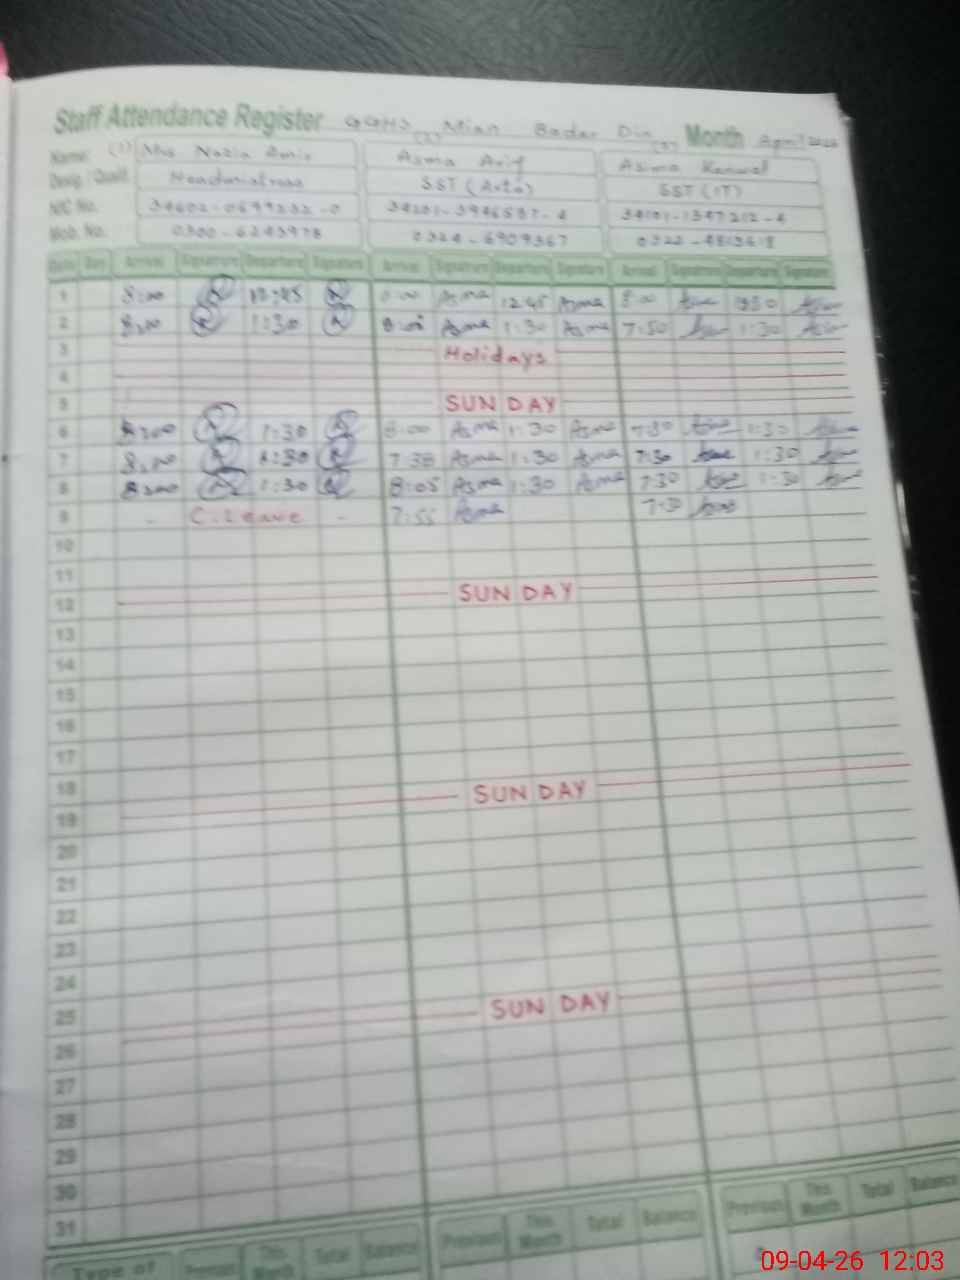 Staff Attendance Register GGHS Mian Badar Din Month April 2026
Name: (1) Mrs Nazia Amir (2) Asma Arif (3) Asma Kanwal
Desig / Qualif. Headmistress SST (Arts) SST (IT)
NIC No. 34602-0699232-0
Mob. No. 0300-6243978 0324-6909367
Date Day Arrival Signature Departure Signature Arrival Signature Departure Signature Arrival Signature Departure Signature
1 8:00 12:45 8:00 Asma 12:45 Asma 8:00
2 8:00 1:30 8:00 Asma 1:30 Asma 7:50 1:30
3 Holidays
4
5 SUNDAY
6 8:00 1:30 8:00 Asma 1:30 Asma 7:30 1:30
7 8:00 1:30 7:38 Asma 1:30 Asma 7:30 1:30
8 8:00 1:30 8:05 Asma 1:30 Asma 7:30 1:30
9 - C. Leave - 7:55 Asma
10
11
12 SUNDAY
13
14
15
16
17
18 SUNDAY
19
20
21
22
23
24
25 SUNDAY
26
27
28
29
30
31
Previous This Month Total Balance
This Month Total Balance Previous This Month Total Balance
09-04-26 12:03